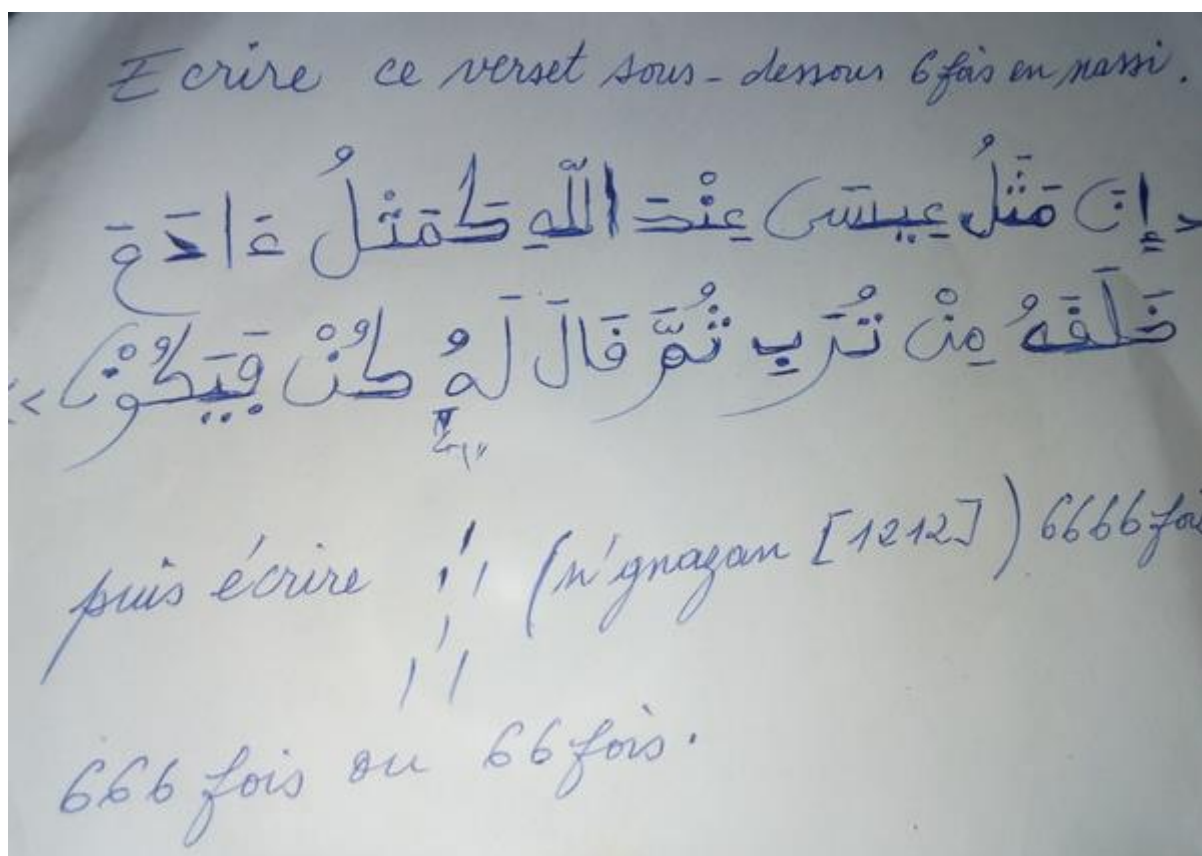 Ecrire ce verset sous-dessous 6 fois en nassi.
إِنَّ مَثَلَ عِيسَى عِنْدَ اللَّهِ كَمَثَلِ ءَادَمَ
خَلَقَهُ مِنْ تُرَبٍ ثُمَّ قَالَ لَهُ كُنْ فَيَكُونُ »
puis écrire (n'gnazan [1212]) 6666 fois
666 fois ou 66 fois.